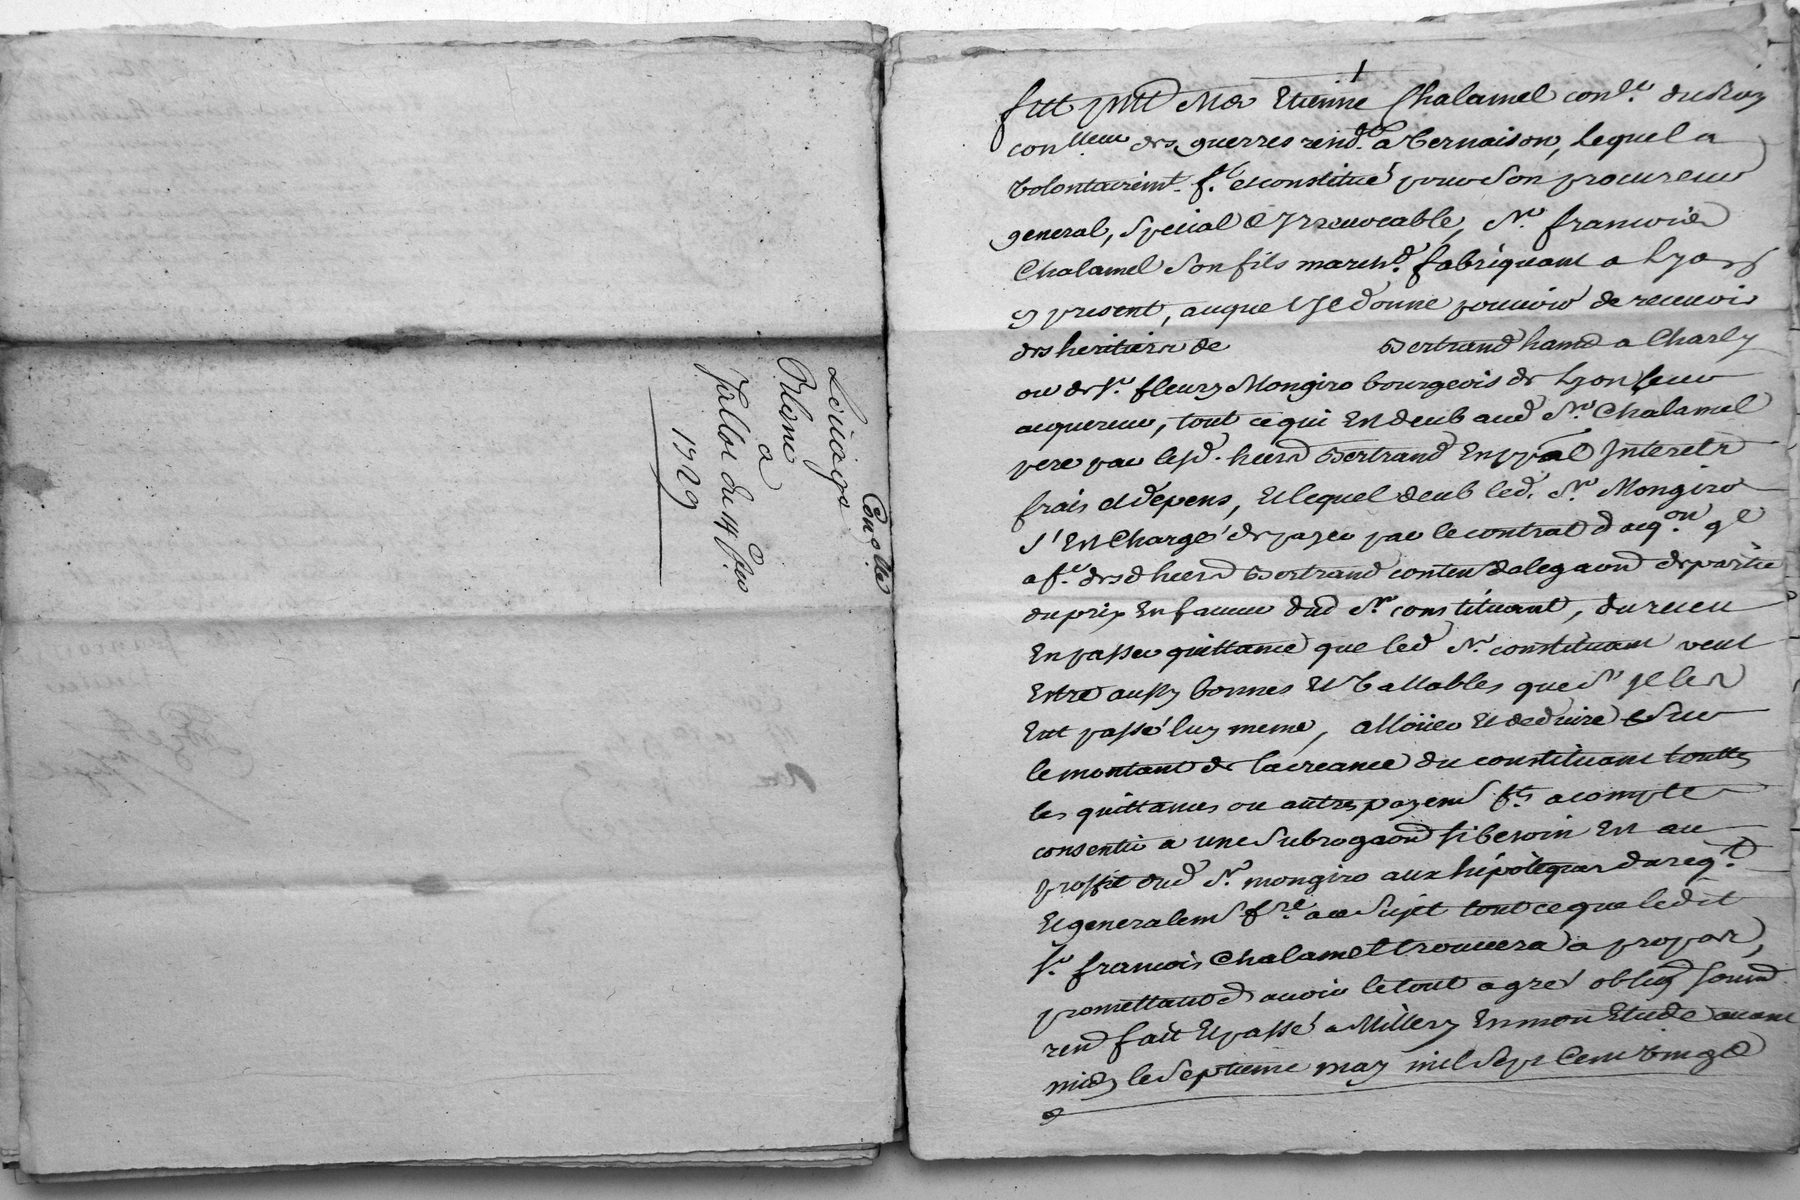 Con.lle
Louage
Blanc
a
Jallot du 14 fev
1729
fut pnt Me Etienne Chalamel con.er du Roy
con.lleur des guerres rend.t a Vernaison, lequel a
volontairemt. f.t et constitué pour son procureur
general, special & Irreuocable, Sr. francois
Chalamel son fils marchd. fabriquant a Lyon
cy present, auquel Il donne pouuoir de receuoir
des heritiers de Bertrand hant a Charly
ou de Sr. fleury Mongiro bourgeois de Lyon leur
acquereur, tout ce qui Est deub aud Sr. Chalamel
pere par lesd. heers Bertrand En ppal Interets
frais et depens, Et lequel deub led. Sr. Mongiro
s'Est Chargé de payer par le contrat d acq.on q.l
a f.t desd heers Bertrand content delegaon de partie
du prix En faueur dud Sr. constituant, du receu
En passer quittance que led Sr. constituant veut
Estre aussy bonnes Et Vallables que s'Il les
Eut passé luy meme, allouer Et deduire sur
le montant de la creance du constituant touttes
les quittances ou autres payems fts acompte
consentir a une subrogaon si besoin Est au
proffit dud Sr. mongiro aux hipoteques dareq.t
Et generalemt f.re au sujet tout ce que ledit
Sr. francois Chalamel trouuera a propos,
promettant auoir le tout agreé oblig soumd
rend fait Et passé a Millery En mon Etude auant
midy le septieme may mil sept Cent Vingt